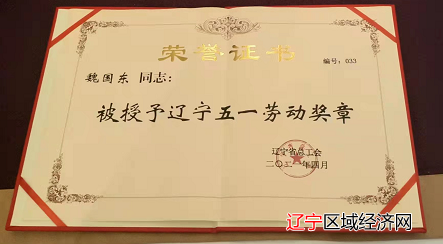 荣誉证书
编号：033
魏国东 同志：
被授予辽宁五一劳动奖章
辽宁省总工会
二〇二一年四月
辽宁区域经济网